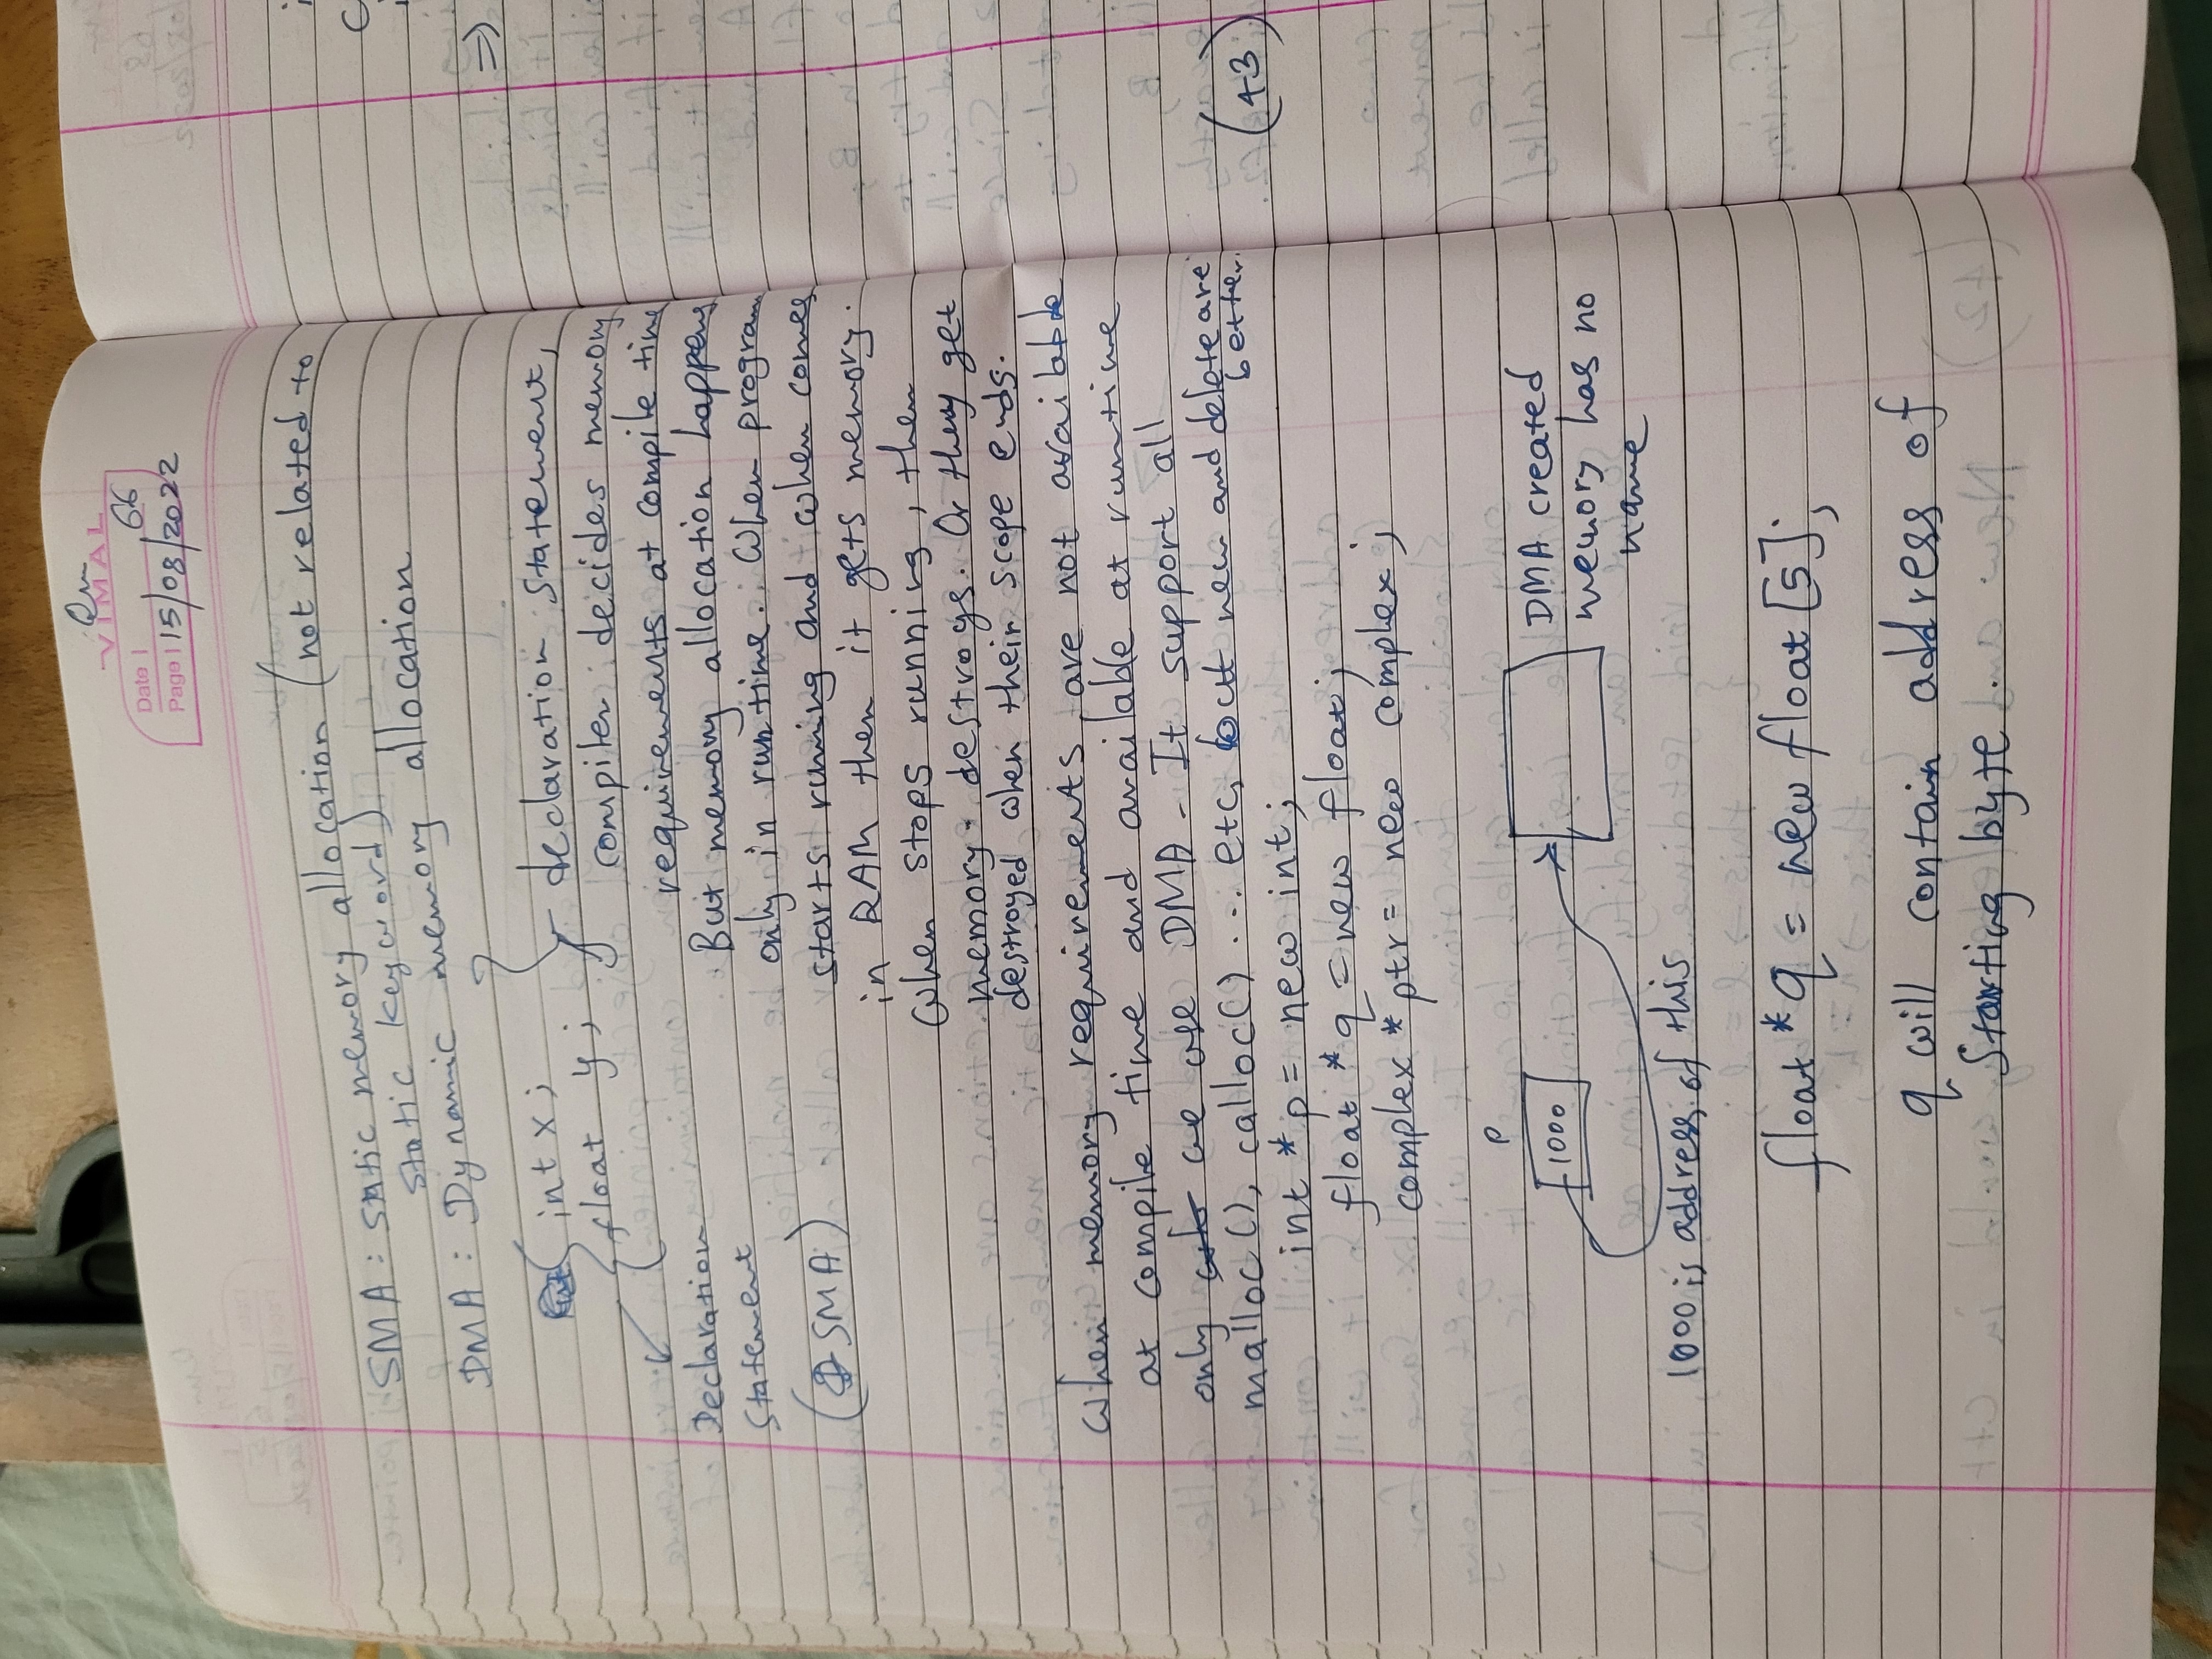 Om
VIMAL
Date 66
Page 15/08/2022
SMA : Static memory allocation (not related to
static keyword)
DMA : Dynamic memory allocation
int x;
float y;
declaration statement,
compiler decides memory
requirements at compile time
Declaration
Statement
(SMA)
But memory allocation happens
only in run time. When program
starts running and when comes
in RAM then it gets memory.
When stops running, then
memory destroys. Or they get
destroyed when their scope ends.
When memory requirements are not available
at compile time and available at runtime
only we use DMA - It support all
malloc(), calloc() ... etc, but new and delete are
better.
int *p = new int;
float *q = new float;
complex *ptr = new complex;
p
1000
DMA created
memory has no
name
1000 is address of this
float *q = new float[5];
q will contain address of
Starting byte.
⇒
(43)